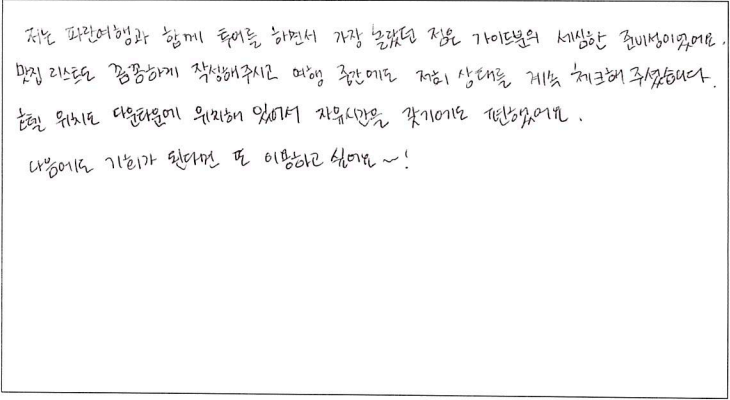 저는 파란여행과 함께 투어를 하면서 가장 놀랐던 점은 가이드분의 세심한 준비성이였어요.
맛집 리스트도 꼼꼼하게 작성해주시고 여행 중간에도 저희 상태를 계속 체크해 주셨습니다.
호텔 위치도 다운타운에 위치해 있어서 자유시간을 갖기에도 편했었어요.
다음에도 기회가 된다면 또 이용하고 싶어요~!